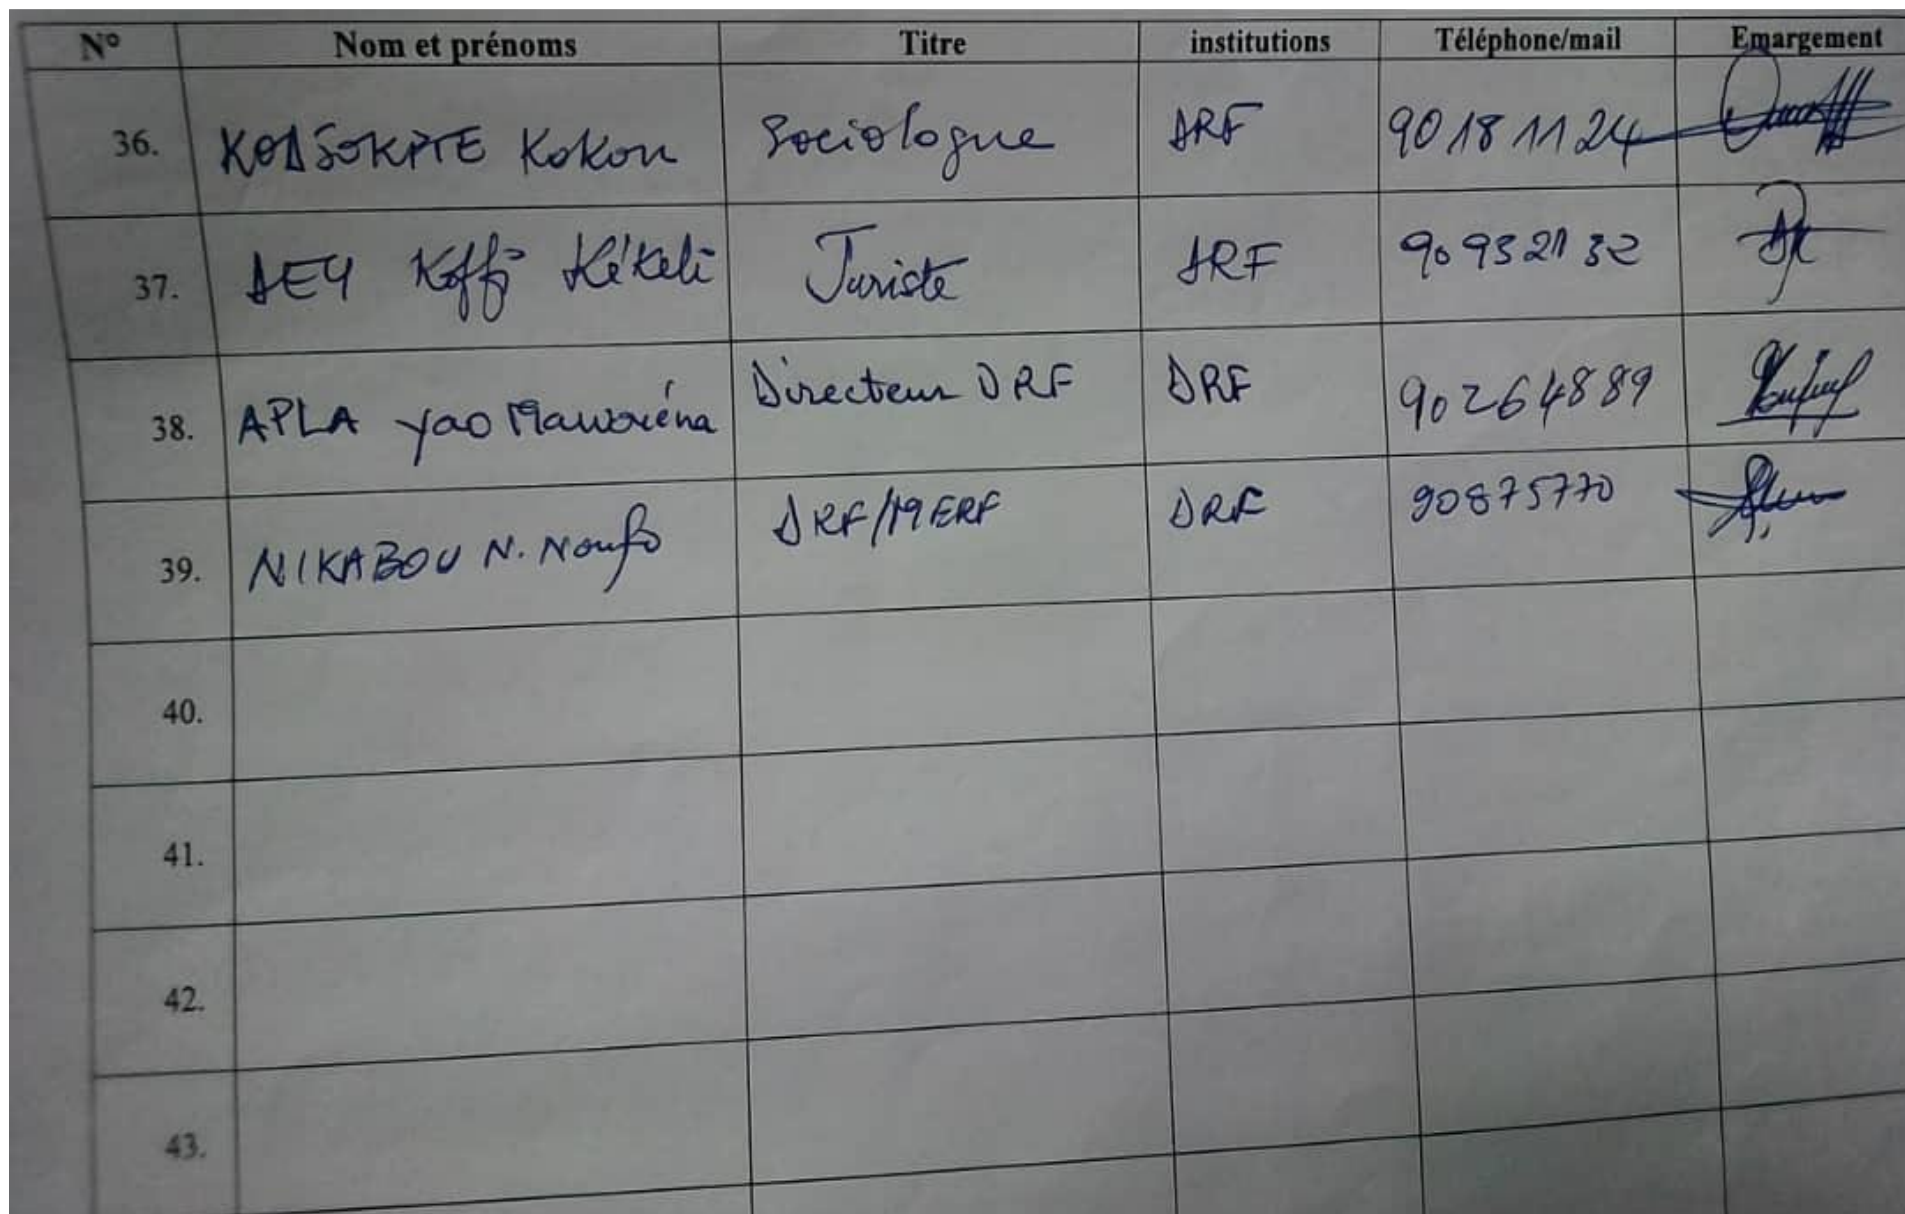 N° Nom et prénoms Titre institutions Téléphone/mail Emargement
36. KODSOKPTE Kokou Sociologue DRF 90 18 11 24
37. DEY Koffi Kékéli Juriste DRF 90 93 21 32
38. APLA Yao Mawouéna Directeur DRF DRF 90264889
39. NIKABOU N. Noufo DRF/MERF DRF 90875770
40.
41.
42.
43.